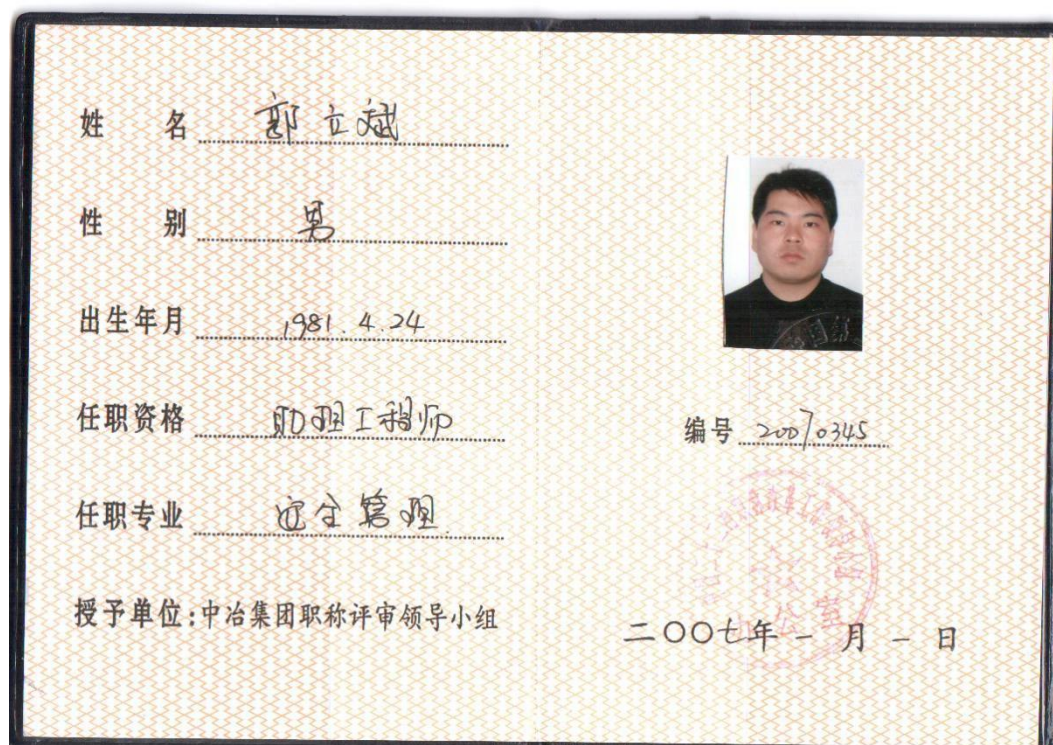 姓 名 郭立斌
性 别 男
出生年月 1981.4.24
任职资格 助理工程师
任职专业 安全管理
授予单位:中冶集团职称评审领导小组
编号 20070345
办公室
二〇〇七年一月一日